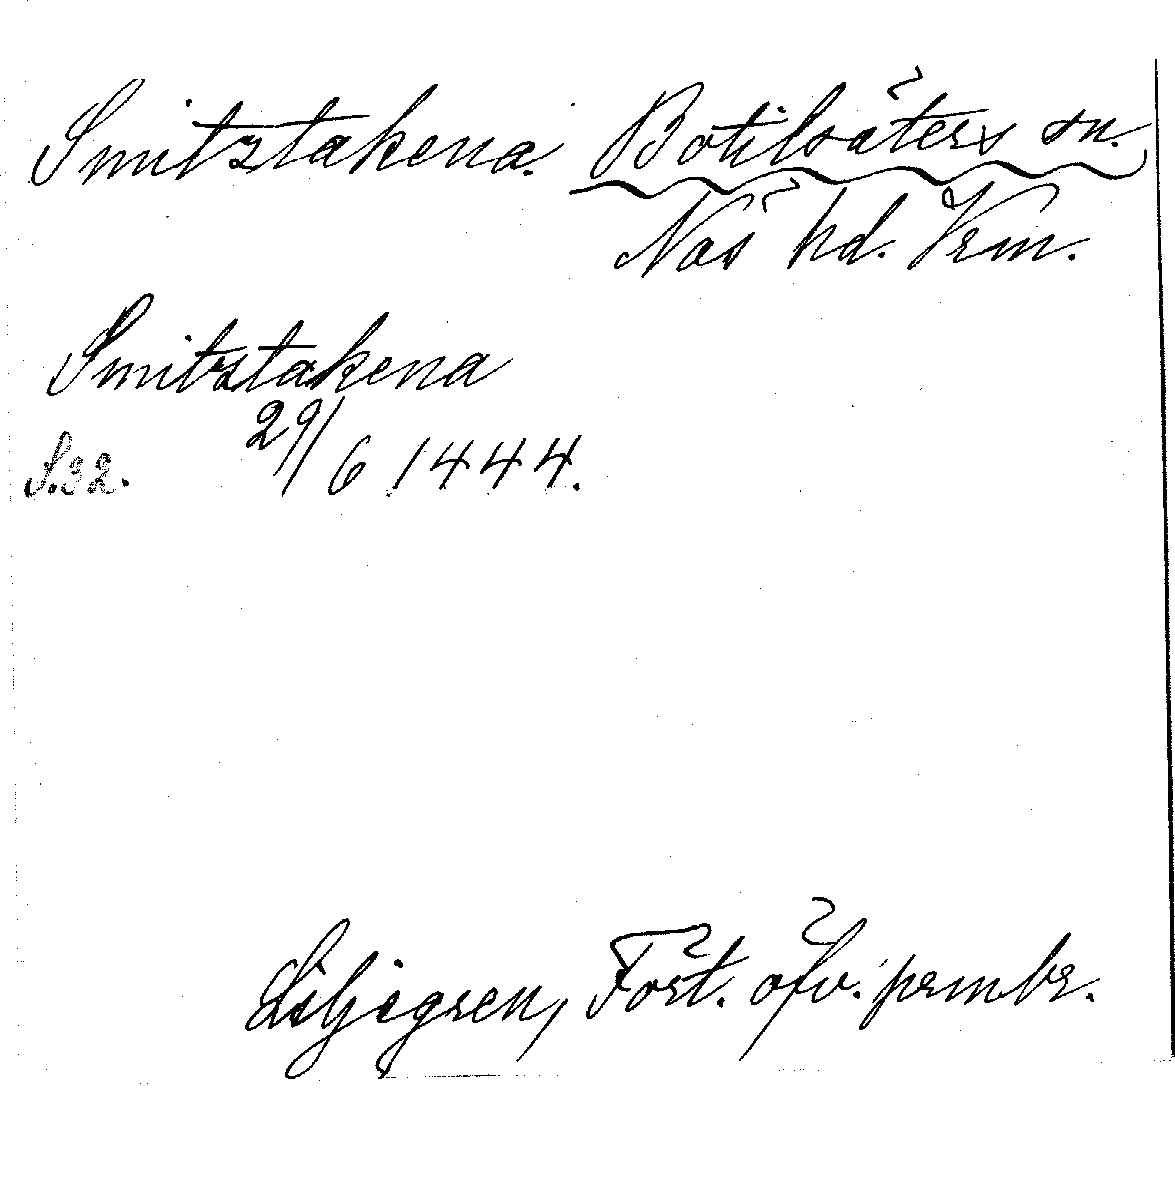 Smitztakena. Botilsäters sn.
Näs hd. Vrm.
Smitztakena
29/6 1444.
S. 32.
Liljegren, Fört. öfv. prmbr.